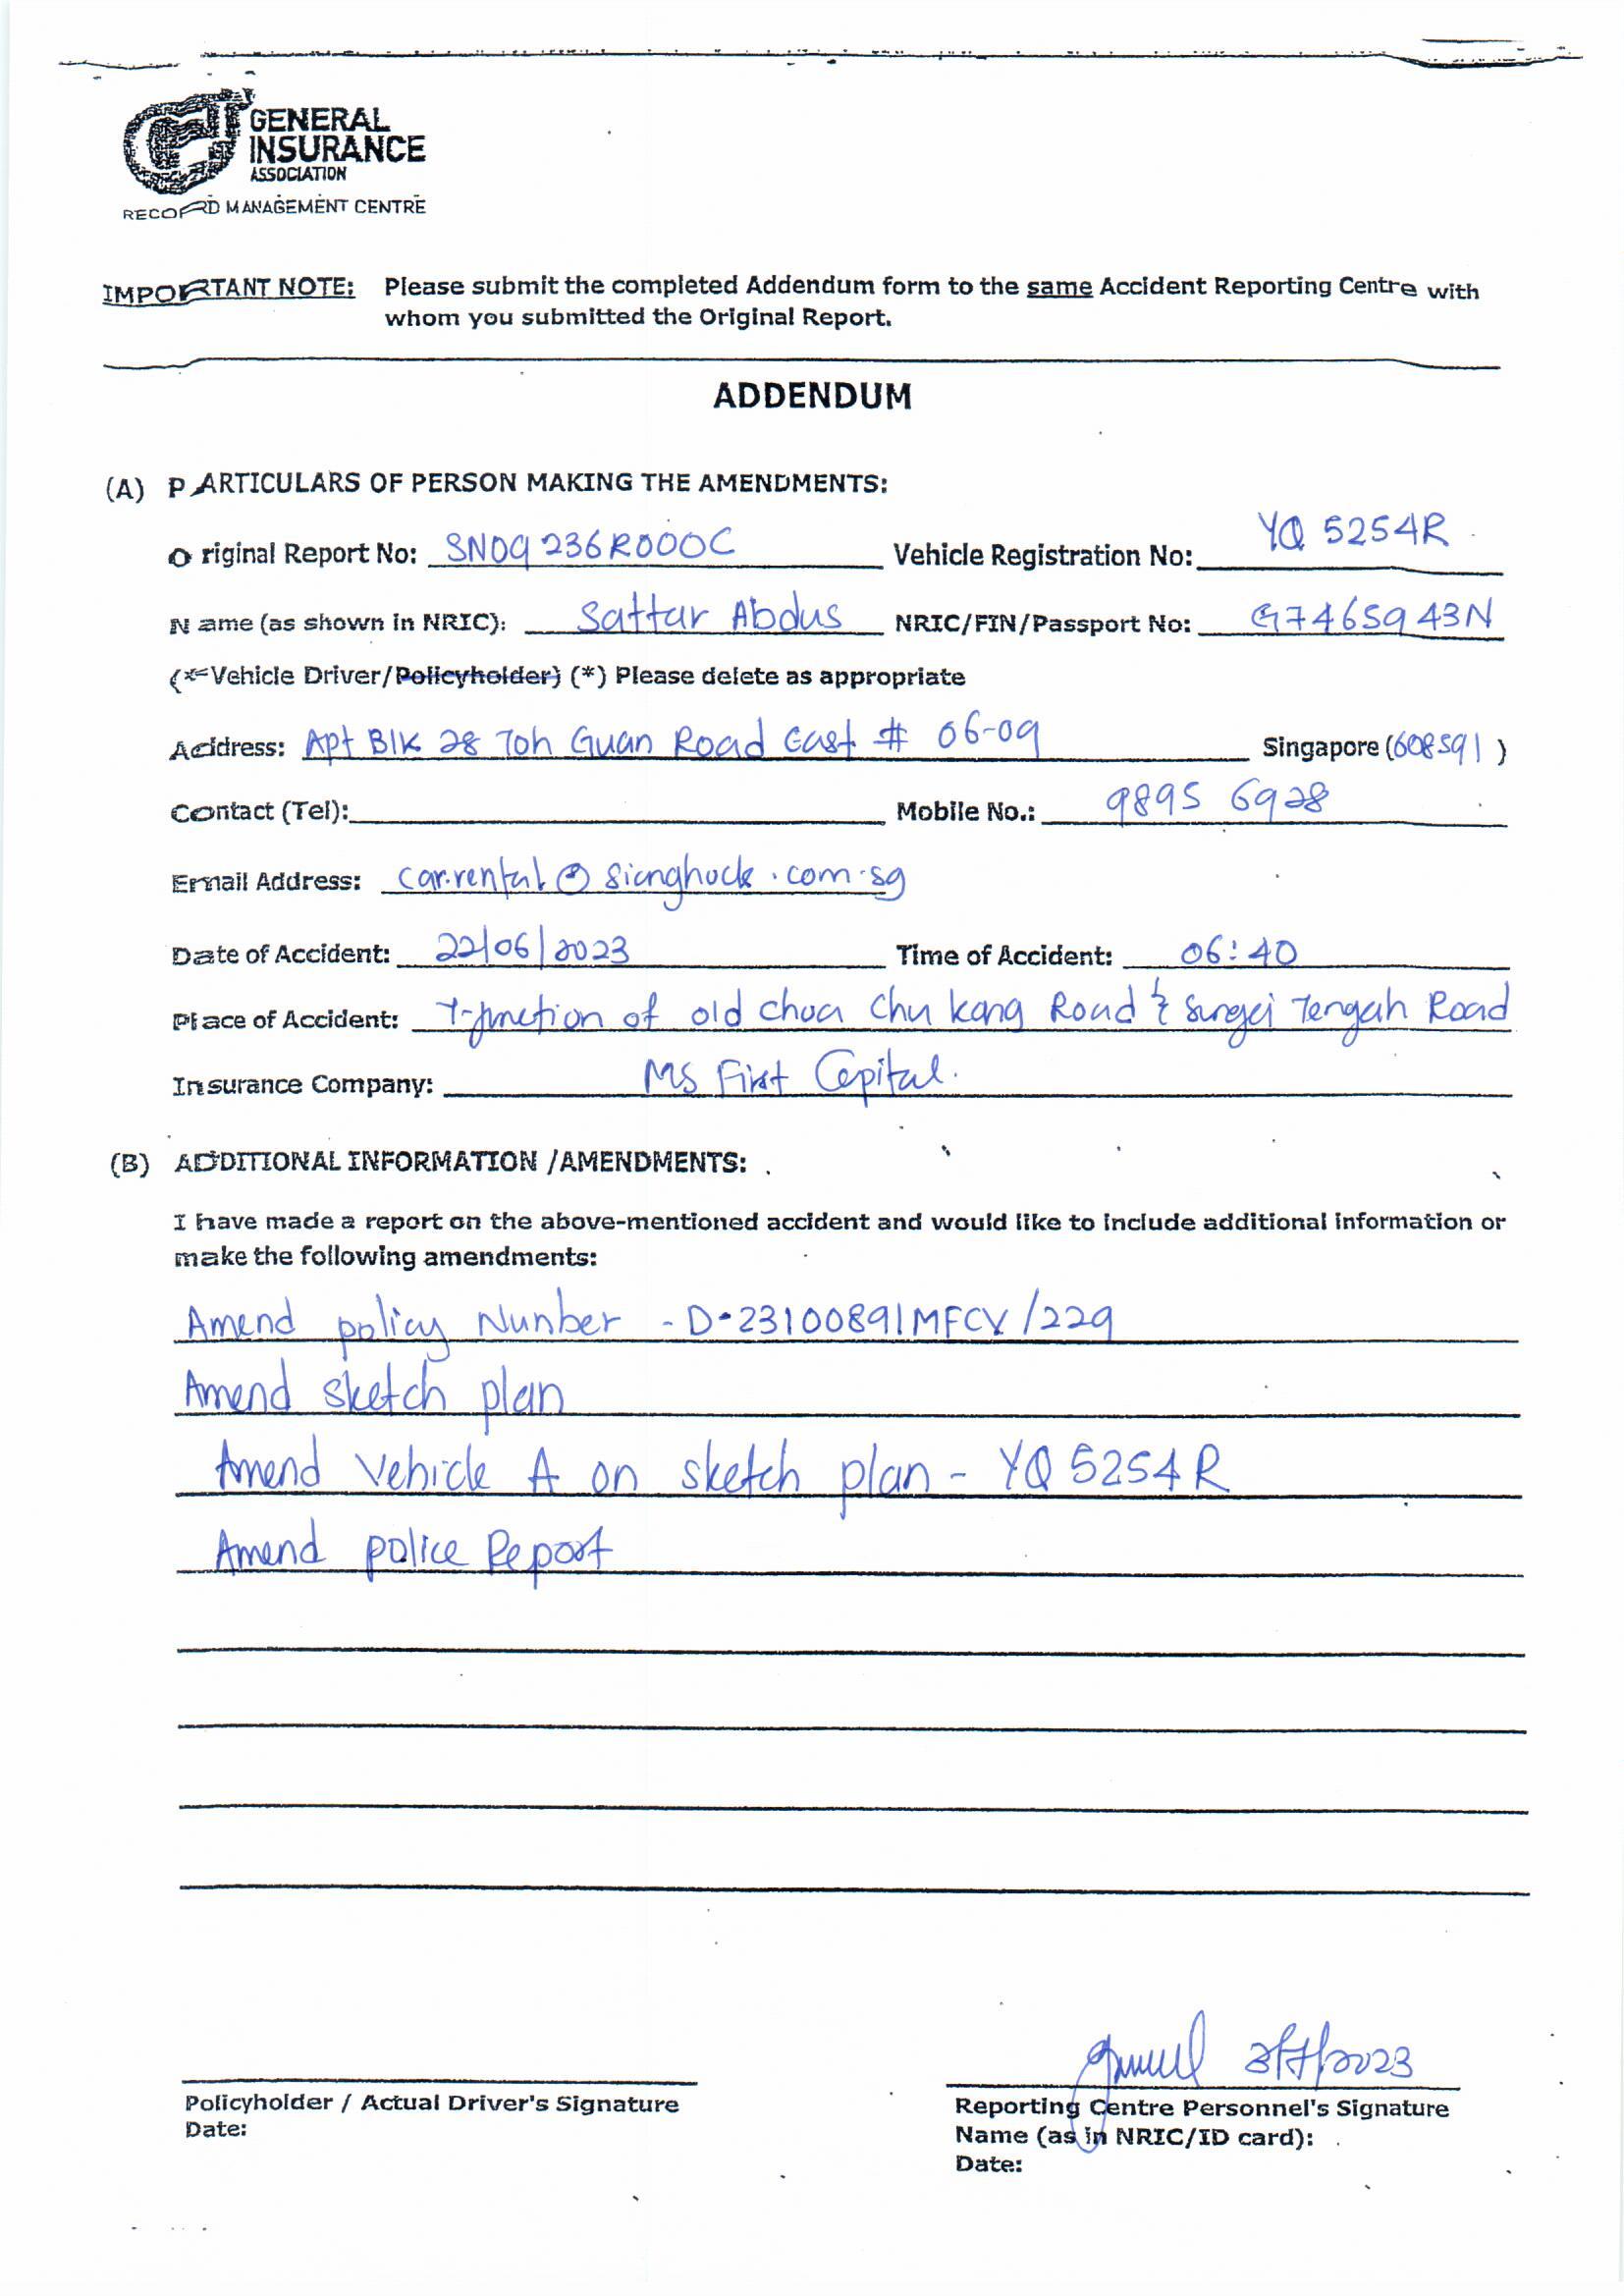 GENERAL
INSURANCE
ASSOCIATION
RECORD MANAGEMENT CENTRE
IMPORTANT NOTE: Please submit the completed Addendum form to the same Accident Reporting Centre with
whom you submitted the Original Report.
ADDENDUM
(A) PARTICULARS OF PERSON MAKING THE AMENDMENTS:
Original Report No: SN09236R000C Vehicle Registration No: YQ 5254R
Name (as shown in NRIC): Sattar Abdus NRIC/FIN/Passport No: G7465943N
(*Vehicle Driver/Policyholder) (*) Please delete as appropriate
Address: Apt Blk 28 Toh Guan Road East # 06-09 Singapore (608591)
Contact (Tel): Mobile No.: 9895 6928
Email Address: car.rental@sianghock.com.sg
Date of Accident: 22/06/2023 Time of Accident: 06:40
Place of Accident: T-junction of old Choa Chu kang Road & Sungei Tengah Road
Insurance Company: MS First Capital.
(B) ADDITIONAL INFORMATION /AMENDMENTS:
I have made a report on the above-mentioned accident and would like to include additional information or
make the following amendments:
Amend policy Nunber - D-23100891MFCV/229
Amend sketch plan
Amend Vehicle A on sketch plan - YQ 5254R
Amend police Report
3/7/2023
Policyholder / Actual Driver's Signature
Date:
Reporting Centre Personnel's Signature
Name (as in NRIC/ID card):
Date: